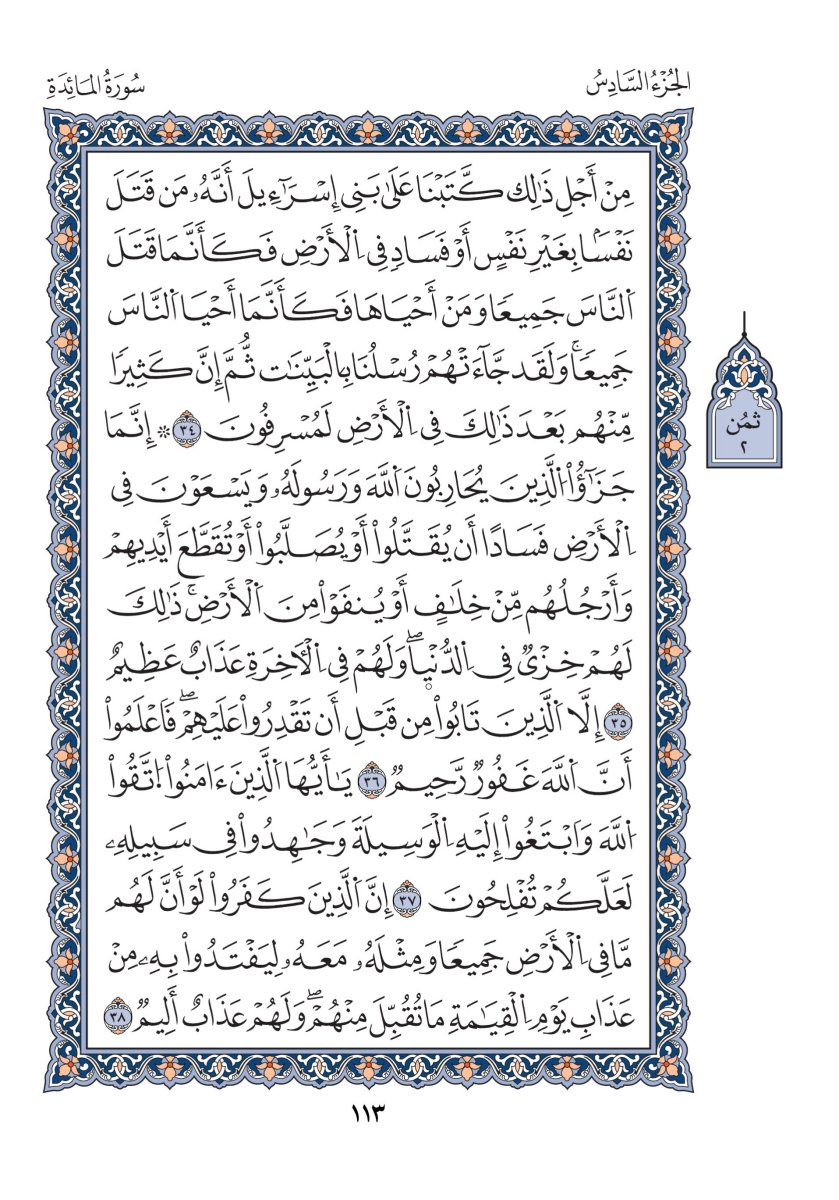 الجُزْءُ السَّادِسُ
سُورَةُ المَائِدَةِ
مِنْ أَجْلِ ذَٰلِكَ كَتَبْنَا عَلَىٰ بَنِي إِسْرَآءِيلَ أَنَّهُۥ مَن قَتَلَ
نَفْسَۢا بِغَيْرِ نَفْسٍ أَوْ فَسَادٖ فِي اِ۬لْأَرْضِ فَكَأَنَّمَا قَتَلَ
اَ۬لنَّاسَ جَمِيعٗا وَمَنْ أَحْيَاهَا فَكَأَنَّمَا أَحْيَا اَ۬لنَّاسَ
جَمِيعٗاۚ وَلَقَد جَّآءَتْهُمْ رُسْلُنَا بِالْبَيِّنَٰت ثُّمَّ إِنَّ كَثِيرٗا
مِّنْهُم بَعْدَ ذَٰلِكَ فِي اِ۬لْأَرْضِ لَمُسْرِفُونَ ٣٤ ۞ إِنَّمَا
جَزَٰٓؤُاْ اُ۬لَّذِينَ يُحَارِبُونَ اَ۬للَّهَ وَرَسُولَهُۥ وَيَسْعَوْنَ فِي
اِ۬لْأَرْضِ فَسَادًا أَن يُقَتَّلُواْ أَوْ يُصَلَّبُواْ أَوْ تُقَطَّعَ أَيْدِيهِمْ
وَأَرْجُلُهُم مِّنْ خِلَٰفٍ أَوْ يُنفَوْاْ مِنَ اَ۬لْأَرْضِۚ ذَٰلِكَ
لَهُمْ خِزْيٞ فِي اِ۬لدُّنْيَاۖ وَلَهُمْ فِي اِ۬لْأٓخِرَةِ عَذَابٌ عَظِيمٌ
٣٥ إِلَّا اَ۬لَّذِينَ تَابُواْ مِن قَبْلِ أَن تَقْدِرُواْ عَلَيْهِمْۖ فَاعْلَمُواْ
أَنَّ اَ۬للَّهَ غَفُورٞ رَّحِيمٞ ٣٦ يَٰأَيُّهَا اَ۬لَّذِينَ ءَامَنُواْ اُ۪تَّقُواْ
اُ۬للَّهَ وَابْتَغُواْ إِلَيْهِ اِ۬لْوَسِيلَةَ وَجَٰهِدُواْ فِي سَبِيلِهِۦ
لَعَلَّكُمْ تُفْلِحُونَ ٣٧ إِنَّ اَ۬لَّذِينَ كَفَرُواْ لَوْ أَنَّ لَهُم
مَّا فِي اِ۬لْأَرْضِ جَمِيعٗا وَمِثْلَهُۥ مَعَهُۥ لِيَفْتَدُواْ بِهِۦ مِنْ
عَذَابِ يَوْمِ اِ۬لْقِيَٰمَةِ مَا تُقُبِّلَ مِنْهُمْۖ وَلَهُمْ عَذَابٌ أَلِيمٞ ٣٨
ثُمُن
٢
١١٣